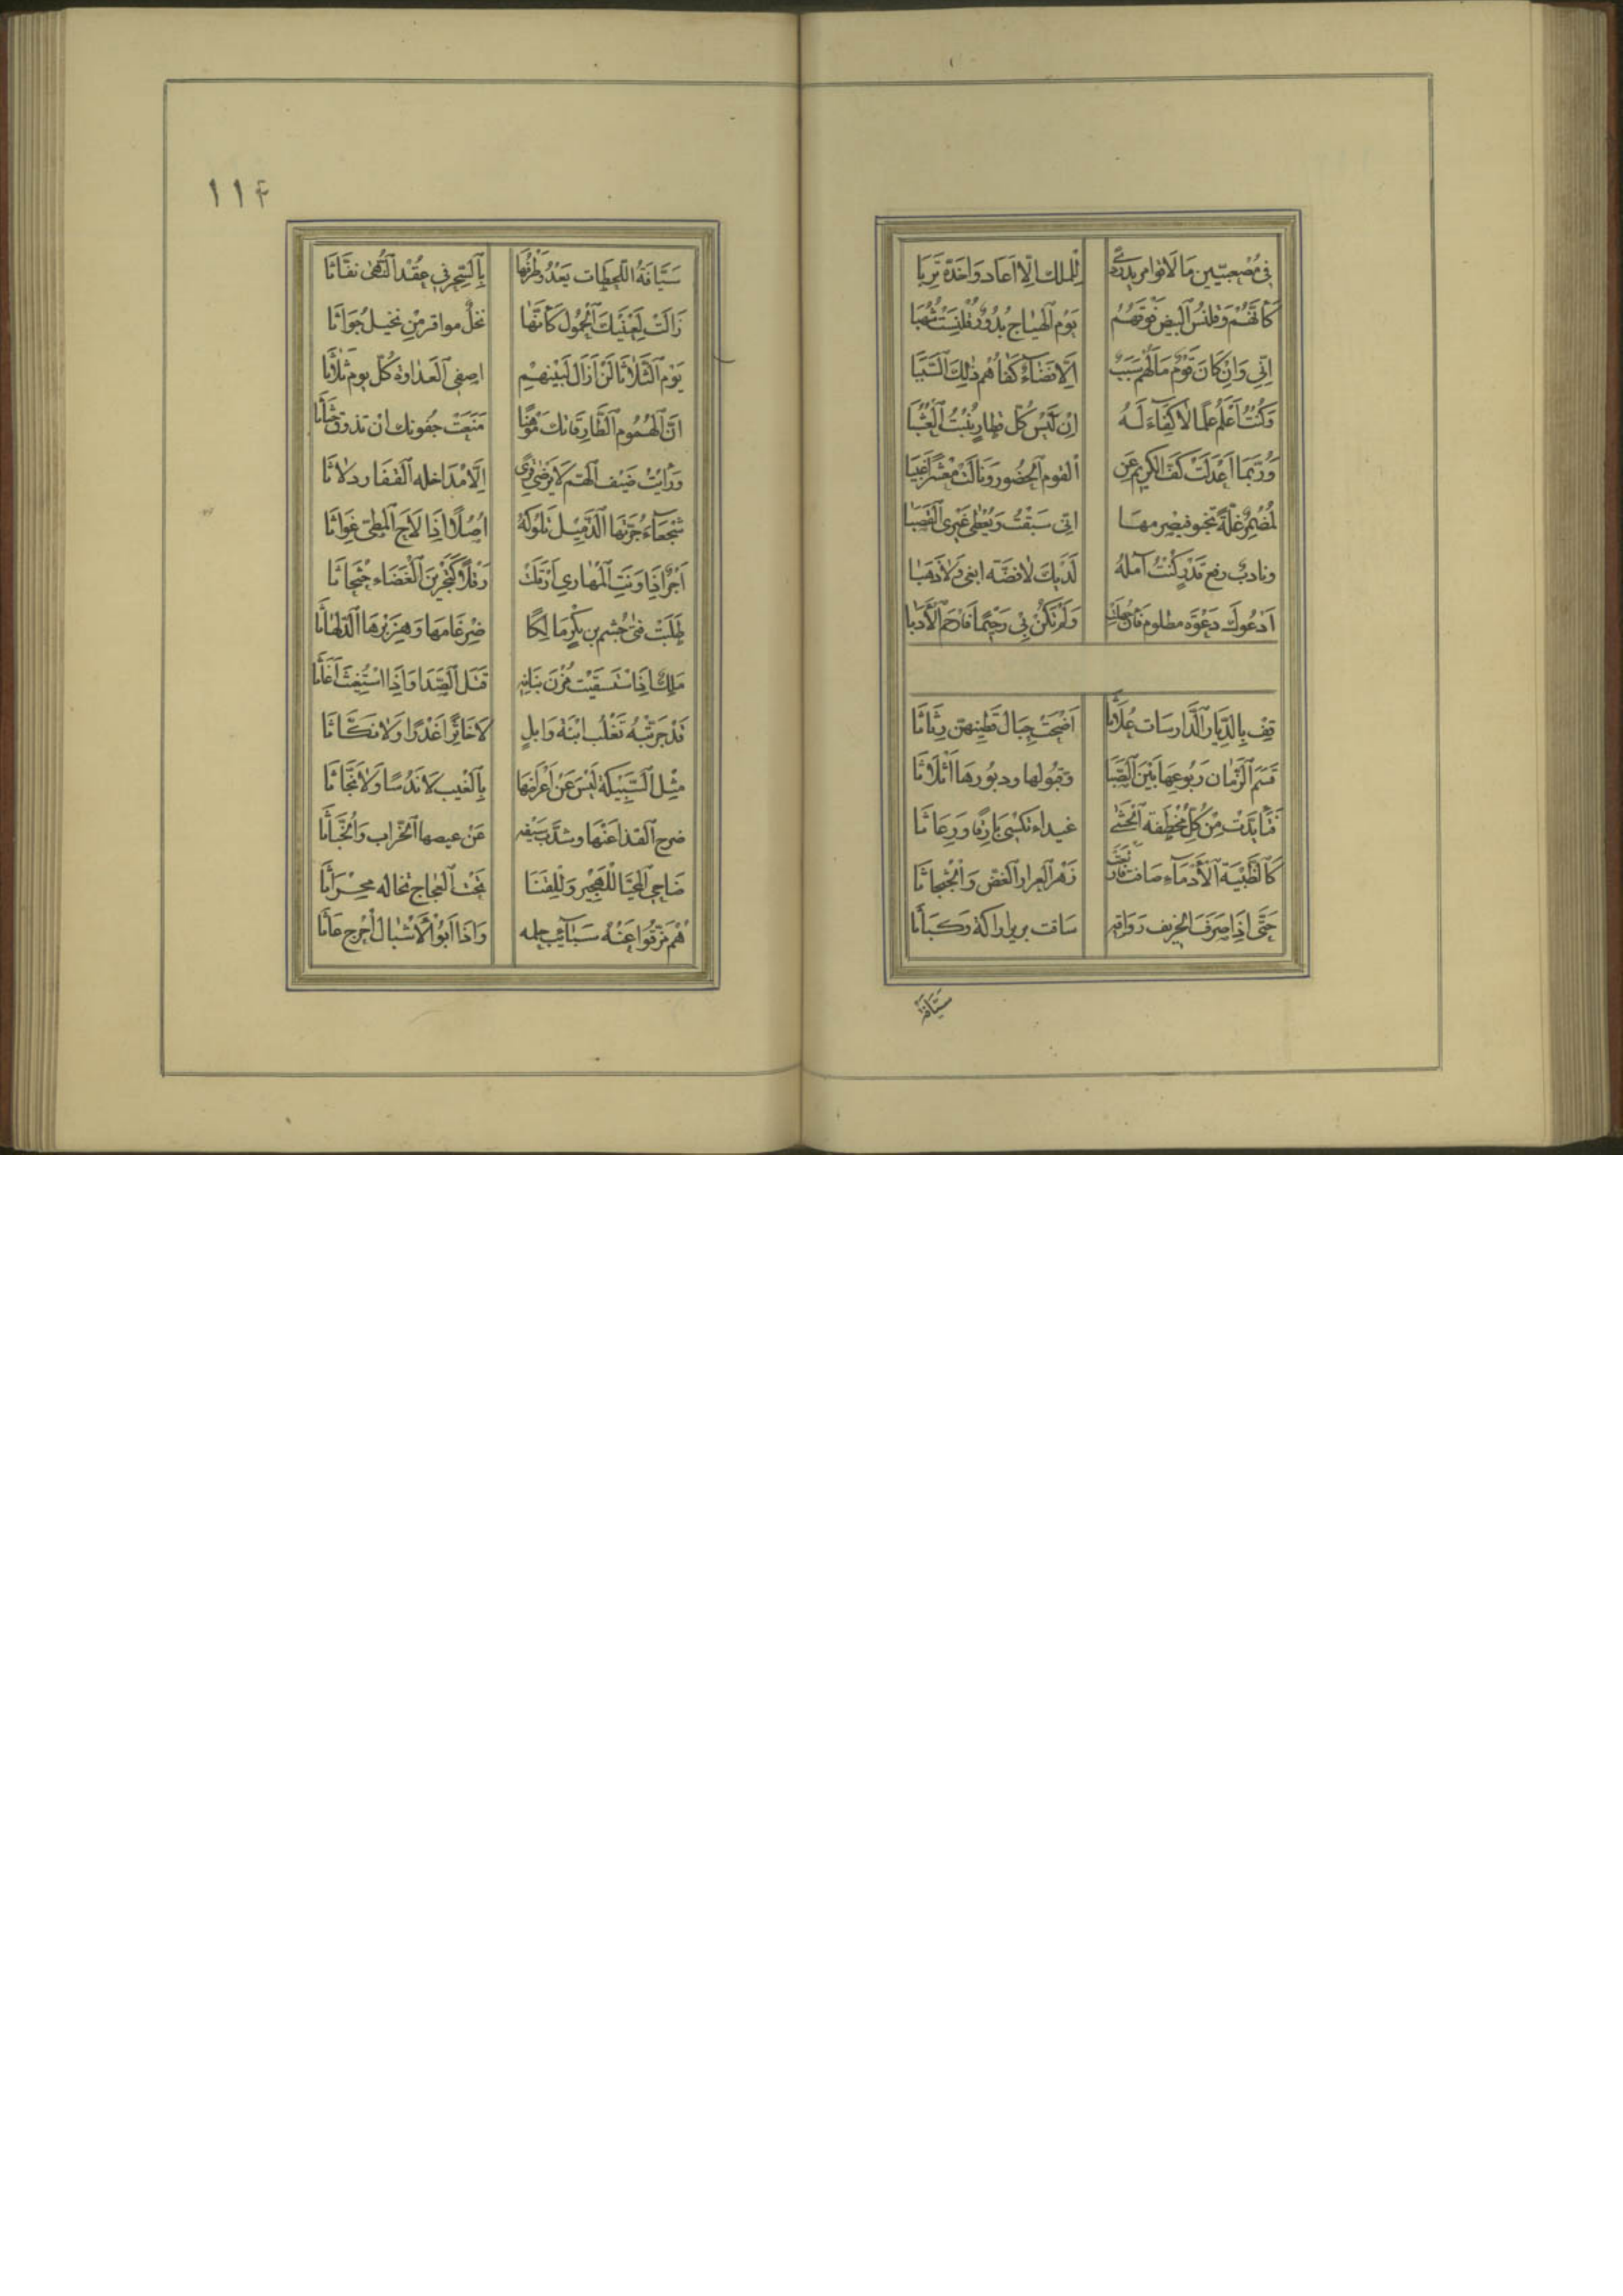 في مصعبيين ما لاقوا مريد ردى للملك إلا أعاد واخده تربا
كَأَنَّهُمْ وَقلنسُ البيض فَوقَهُمُ يَوْم الهياج بُدُورٌ قُلنِسَتْ شُهُبَا
إنّي وَإن كَانَ قَوْمٌ مَا لَهُم سَبَبٌ إلا قضاءٌ كفاهُم ذلك السَّبَبَا
وَكُنْتُ أَعْلَمُ عِلمًا لا كِفَاءَ لَهُ إن لَيْسَ كلّ قطار يُنْبِتُ العُشبَا
وَرُبَّمَا اعدلَتْ كفّ الكريم عَن القوم الحُضُور ونالَتْ مَعْشرًا غَيَبا
لمُضْمِرٌ غلّةً تخبو فيضرمها انّي سَبقْتُ ويُعْطَى غيري القَصَبَا
ونادبٌ رفع قدر كُنْتُ آمله لَدَيكَ لا فضّة ابغي ولا ذهَبا
أدعُوك دَعْوَة مظلوم وَلَمْ تكُنْ بي رَحِيمًا فارحَم الأَدَبا
قِف بِالدّيَار الدَّارسَات عُلاثا أضحَت حِبال قَطِينهن رِثاثا
قسَمَ الزّمان رَبُوعهَا بَيْنَ الصَّبَا وقبُولها ودبُورها أثلاثا
فتأبّدَت مِنْ كُلّ مُخْطفَة الحشى غيداء تكسى يارقًا ورعاثا
كالظّبيَة الأَدْمَاء صافت فارتعَت زهر العرار الغض والجثجاثا
حَتَّى إذا صرفَ الخريف رواقه سافت برير اراكة وكَبَاثا
سيّافة
١١٤
سَيَّافَةُ اللّحظات يَغْدُو طرفُها بِالسّحر في عُقَد النّهى نفّاثا
زَالَتْ لِعَيْنَيكَ الحُمُول كأنّها نخلٌ مواقر مِن نخيل جُوَاثا
يَوْم الثّلاثا لَنْ أزال لبَيْنهمْ اصفي العداوة كلّ يوم ثلاثا
انّ الهُمُوم الطّارقاتك مَوْهِنًا مَنعَتْ جفونك ان تذوق حَثاثا
وَرَأيتُ ضيف الهَمّ لا يرضى قرى إلا مداخله القفار دلاثا
شَجْعَاءَ جُرّتها الذّميل تلُوكهُ أصُلاً إذا راحَ المطيّ غِراثا
أُجُدًا إذا وَنَتِ المهاري ارقلَتْ رَقلاً كتحريق الغَضَاء حَثحاثا
طَلَبَتْ فتى جُشم بن بكرٍ مَالِكًا ضرغامها وَهِزَبْرهَا الدّلهاثا
مَلِكٌ إذا استسقَيْت مُزْن بَنَانه قتل الصّدا وإذا استُغِثْت أغَاثا
قَدْ جَرّبَتْهُ تغْلب ابْنَة وائلٍ لا خاتِرًا غَدْرًا وَلا نكّاثا
مِثْل السّبيكة لَيْسَ عَن أعراضها بالغَيب لا نَدُسًا وَلا بحّاثا
ضرح القذا عَنْهَا وشدّ بسَيْفه عَنْ عيصها الخرّاب والخُبّاثا
ضاحي المُحيّا لِلهَجِير وَلِلقَنا تحْت العجاج تخاله محْرَاثا
هُم مزّقوا عَنْه سَبَائب حلمه وَإذا أبو الأشبال أحْرج عَاثا